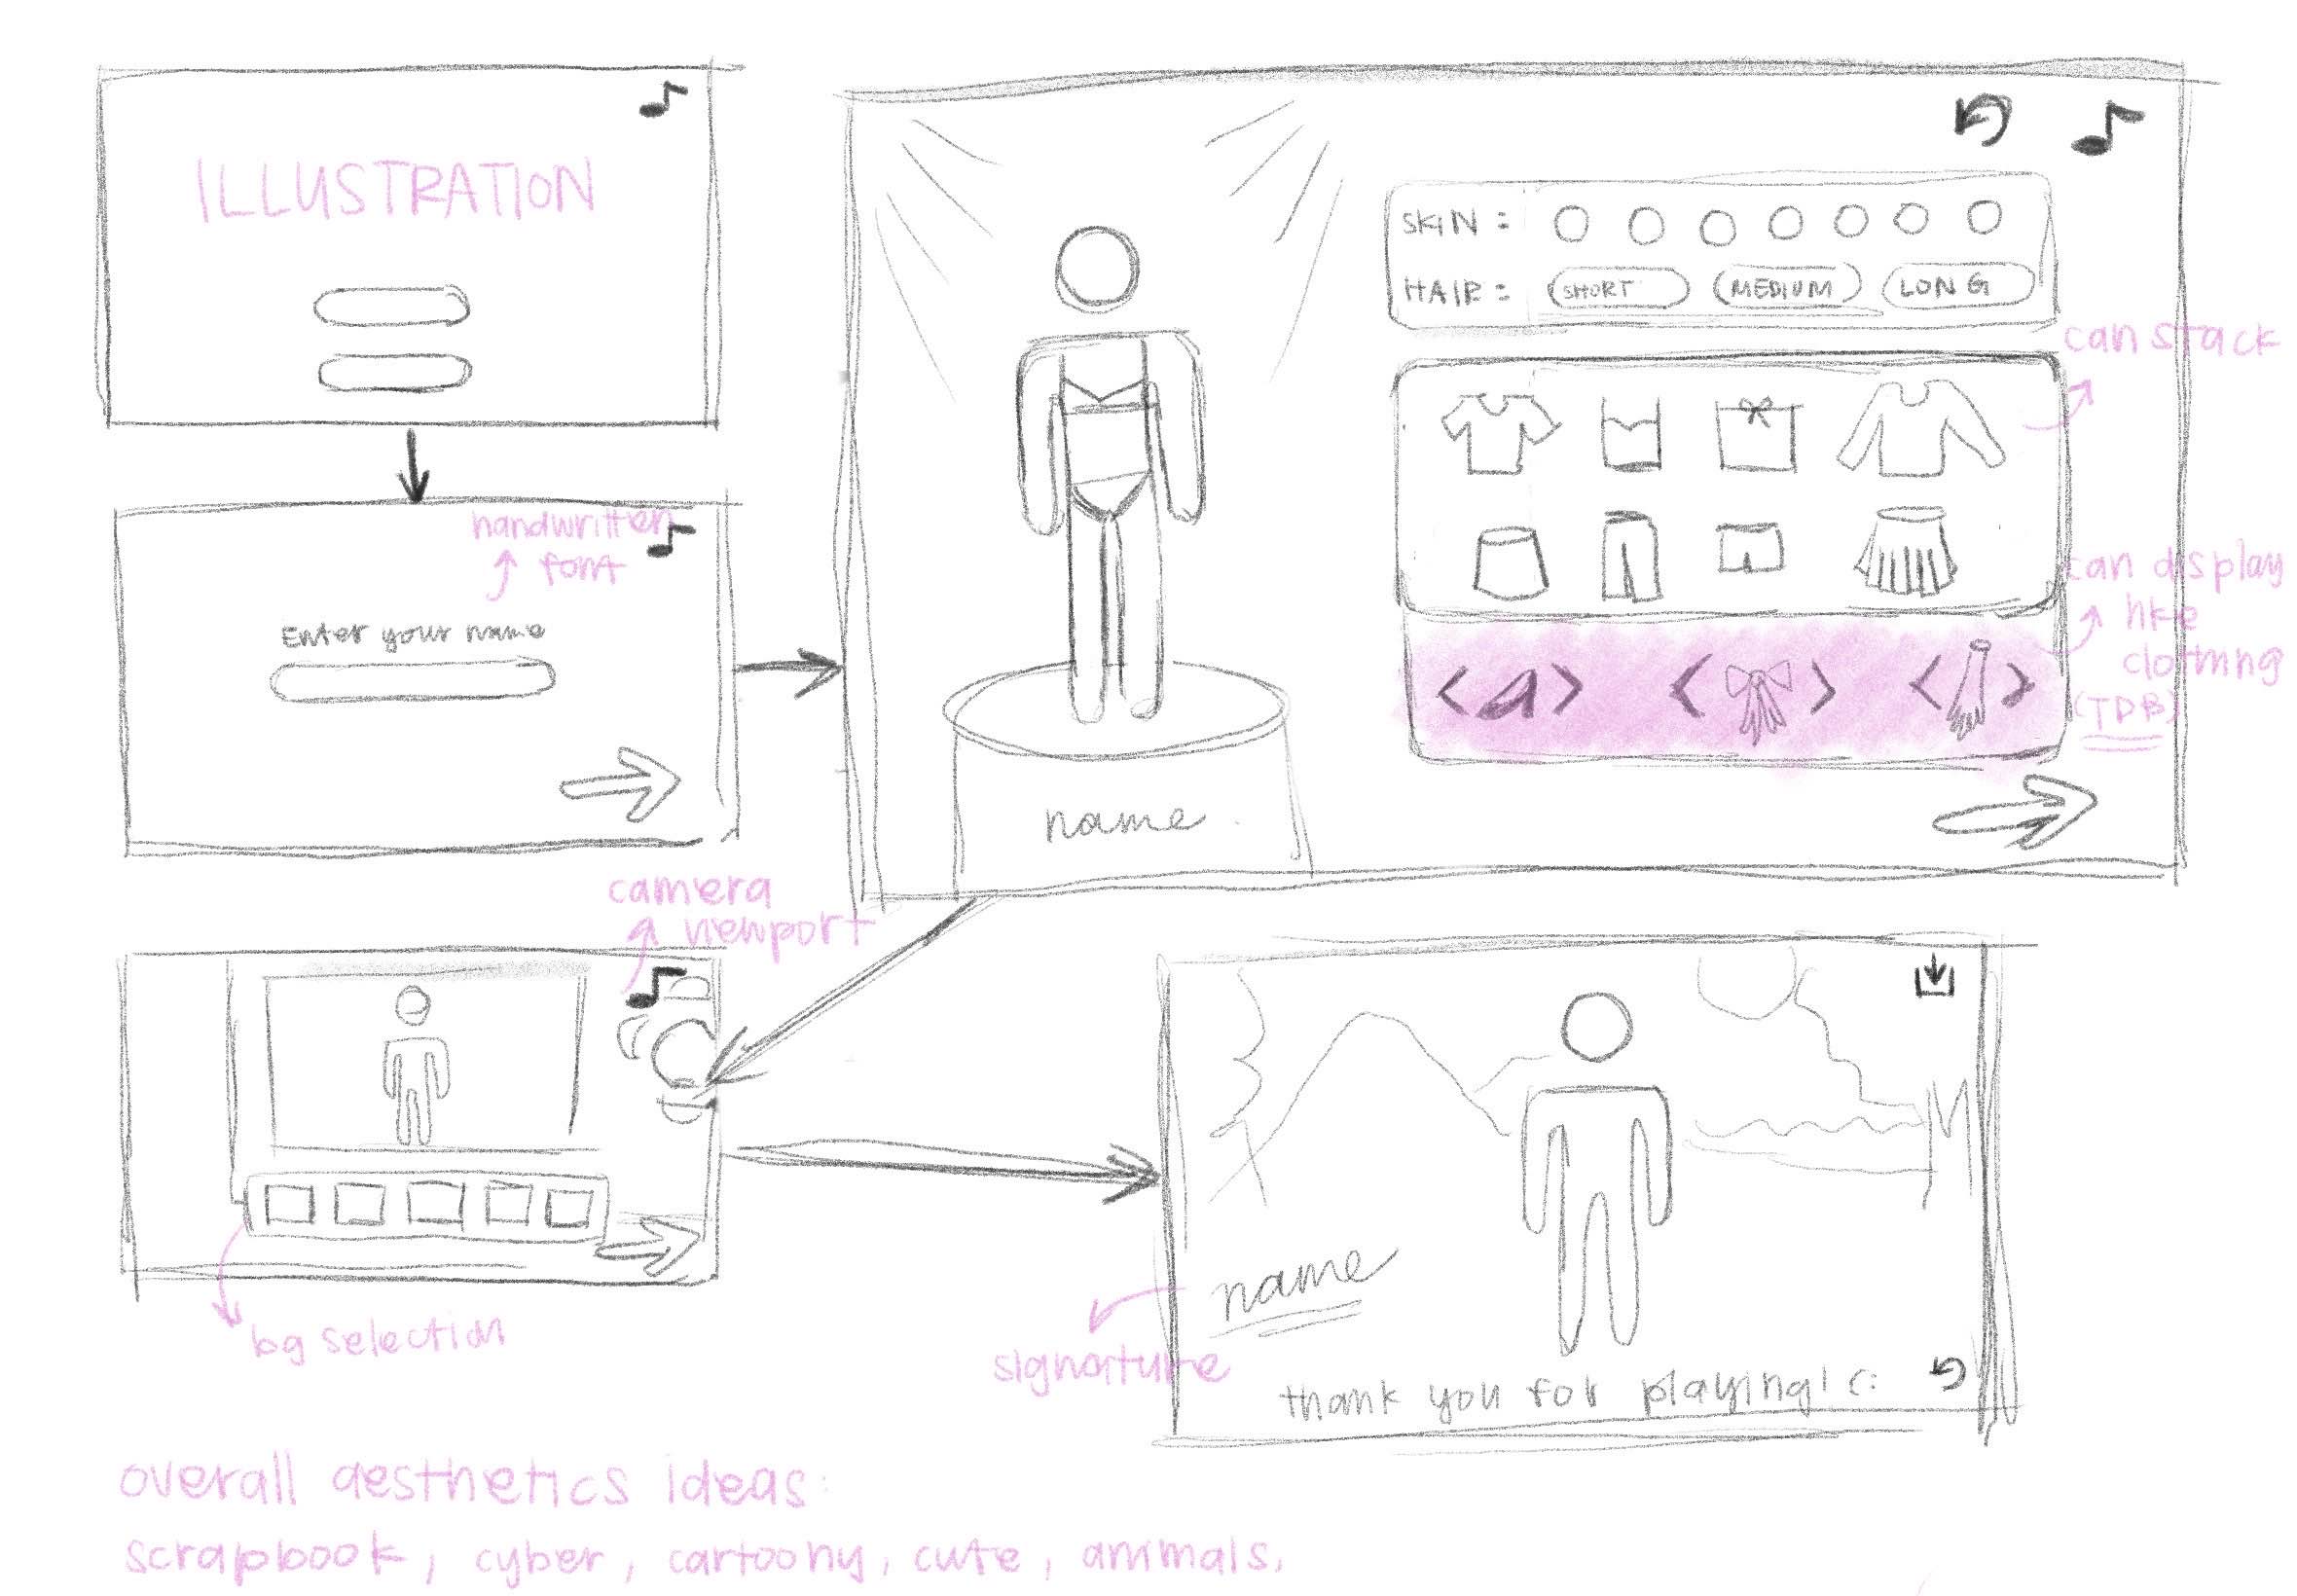 ILLUSTRATION
handwritten
font
Enter your name
SKIN :
HAIR :
SHORT
MEDIUM
LONG
can stack
can display
like
clothing
(TDB)
name
camera
viewport
bg selection
name
signature
thank you for playing! c:
overall aesthetics ideas:
scrapbook, cyber, cartoony, cute, animals.